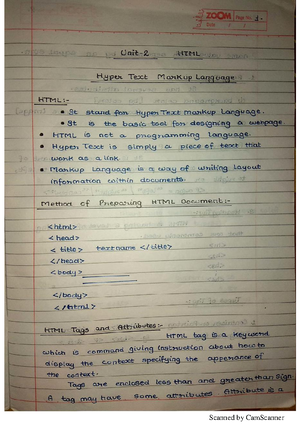 ZOOM Page No. 1.
Date
Unit-2 HTML
Hyper Text Markup Language
HTML:-
• It stand for Hyper Text markup Language.
• It is the basic tool for designing a webpage
• HTML is not a programming language.
• Hyper Text is simply a piece of text that
work as a link.
• Markup Language is a way of writing layout
information within documents.
Method of Preparing HTML Document:-
<html>
<head>
<title> textname </title>
</head>
<body>
</body>
</html>
HTML Tags and Attributes:-
HTML tag is a keyword
which is commans giving instruction about how to
display the context specifying the apperance of
the context.
Tags are enclosed less than and greater than sign
A tag may have some attributes. Attribute is a
Scanned by CamScanner